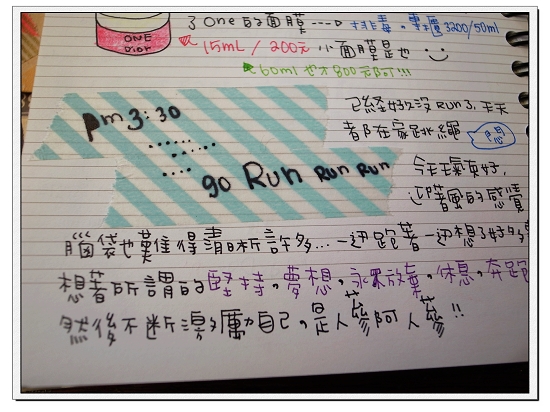 ONE
Dior
3 One的面膜----▷排毒。專櫃3200/50ml
15mL / 200元 小面膜是也
60ml也才800元阿!!!
pm 3:30
go Run Run Run
已經好久沒Run 3. 天天
都在家跳繩
悶
今天天氣真好,
迎著風的感覺
腦袋也變得清晰許多... 一邊跑著一邊想了好多
想著所謂的堅持。夢想。永不放棄。休息。奔跑
然後不斷漫罵勵自己。是人蔘阿人蔘!!